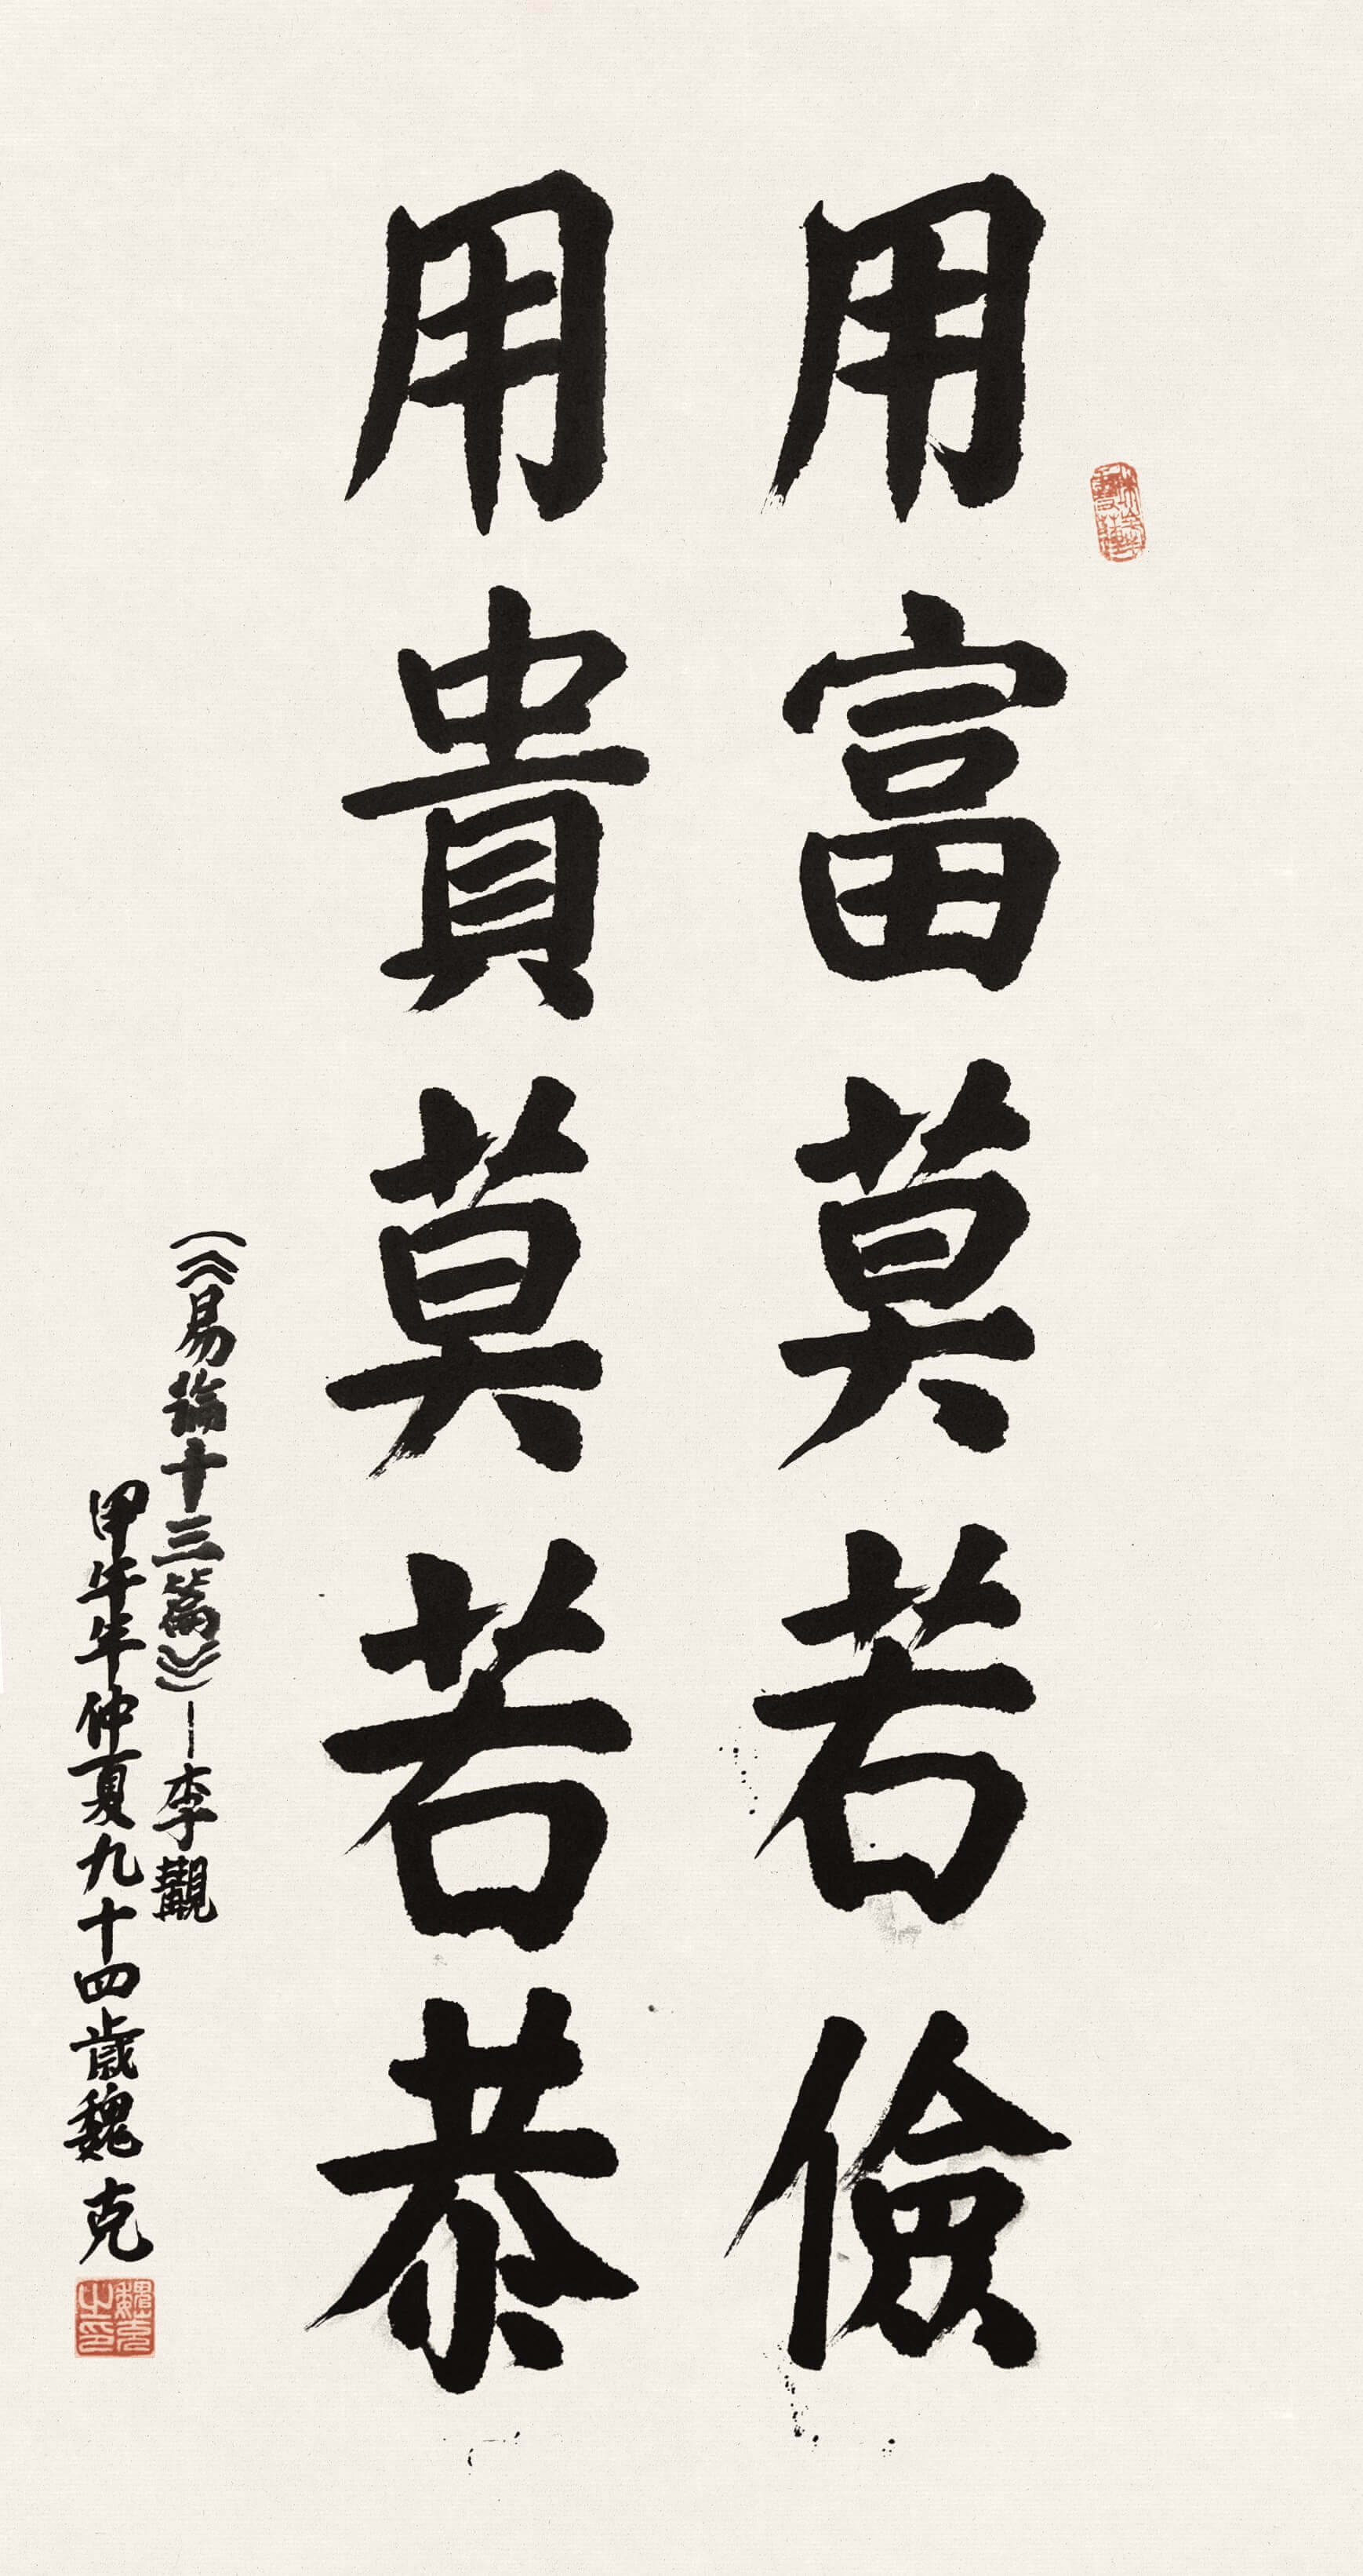 用富莫若儉
用貴莫若恭
(《易論十三篇》—李覯
甲午年仲夏九十四歲魏克
魏克之印